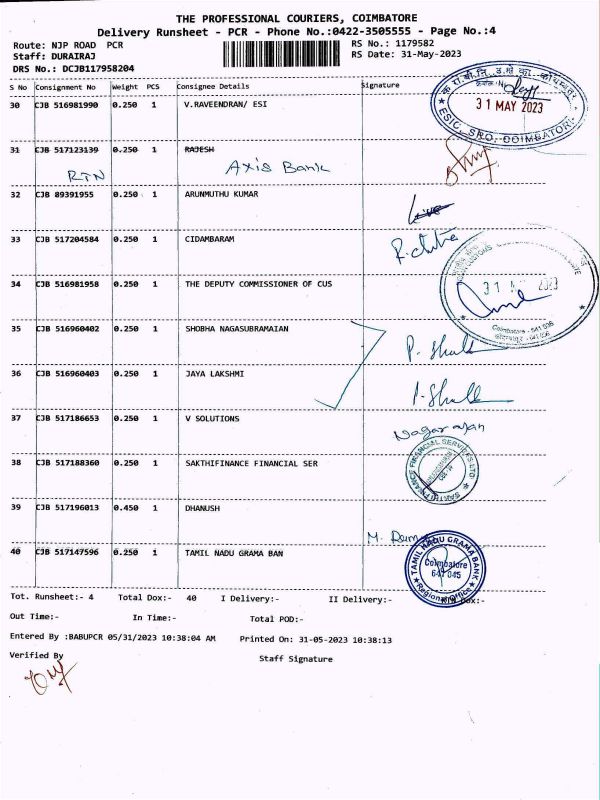 THE PROFESSIONAL COURIERS, COIMBATORE
Delivery Runsheet - PCR - Phone No.:0422-3505555 - Page No.:4
Route: NJP ROAD PCR
RS No.: 1179582
Staff: DURAIRAJ
RS Date: 31-May-2023
DRS No.: DCJB117958204
S No Consignment No Weight PCS Consignee Details Signature
30 CJB 516981990 0.250 1 V.RAVEENDRAN/ ESI
31 MAY 2023
ESIC, SRO, COIMBATORE
31 CJB 517123139 0.250 1 RAJESH
RTN Axis Bank
32 CJB 89391955 0.250 1 ARUNMUTHU KUMAR
33 CJB 517204584 0.250 1 CIDAMBARAM
R. chitra
34 CJB 516981958 0.250 1 THE DEPUTY COMMISSIONER OF CUS
31 2023
Coimbatore - 641 018
35 CJB 516960402 0.250 1 SHOBHA NAGASUBRAMAIAN
36 CJB 516960403 0.250 1 JAYA LAKSHMI
37 CJB 517186653 0.250 1 V SOLUTIONS
Nagarajan
38 CJB 517188360 0.250 1 SAKTHIFINANCE FINANCIAL SER
SAKTHIFINANCE FINANCIAL SERVICES LTD
39 CJB 517196013 0.450 1 DHANUSH
40 CJB 517147596 0.250 1 TAMIL NADU GRAMA BAN
TAMIL NADU GRAMA BANK
Coimbatore
641 045
Regional Office
Tot. Runsheet:- 4 Total Dox:- 40 I Delivery:- II Delivery:-
Out Time:- In Time:- Total POD:-
Entered By :BABUPCR 05/31/2023 10:38:04 AM Printed On: 31-05-2023 10:38:13
Verified By Staff Signature